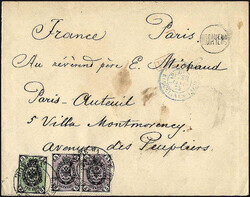 France Paris.
Au révérend père E. Michaud
Paris-Auteuil
5 Villa Montmorency
avenue des Peupliers